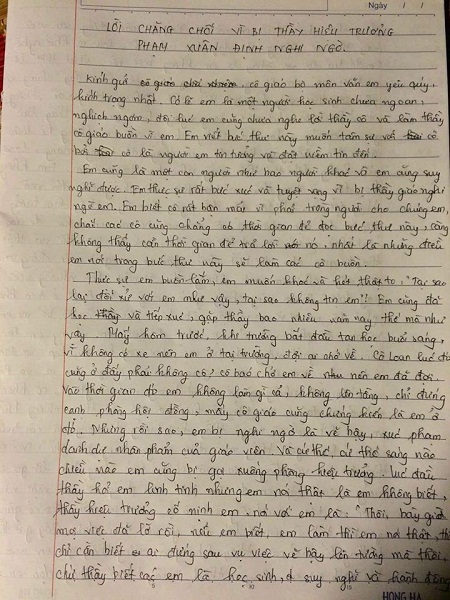 Ngày / /
LỜI CHĂNG CHỐI VÌ BỊ THẦY HIỆU TRƯỞNG
PHẠM XUÂN ĐỊNH NGHI NGỜ.
Kính gửi cô giáo chủ nhiệm, cô giáo bộ môn văn em yêu quý,
kính trọng nhất. Có lẽ em là một người học sinh chưa ngoan,
nghịch ngợm, đôi lúc em cũng chưa nghe lời thầy cô và làm thầy
cô giáo buồn vì em. Em viết bức thư này muốn tâm sự với cô
bởi cô là người em tin tưởng và đặt niềm tin đến.
Em cũng là một con người như bao người khác và em cũng suy
nghĩ được. Em thực sự rất bức xúc và tuyệt vọng vì bị thầy giáo nghi
ngờ em. Em biết cô rất bận mấy vì phải trồng người cho chúng em,
chắc cô cũng chẳng có thời gian để đọc bức thư này, cũng
không thấy cần thời gian để trả lời nó, nhất là những điều
em nói trong bức thư này sẽ làm các cô buồn.
Thực sự em buồn lắm, em muốn khóc và hét thật to: "Tại sao
lại đối xử với em như vậy, tại sao không tin em"! Em cũng đã
học và tiếp xúc, gặp thầy bao nhiêu năm nay thế mà như
vậy. Mấy hôm trước, khi trường bắt đầu tan học buổi sáng,
vì không có xe nên em ở tại trường, đợi ai chở về. Cô Loan lúc đó
cũng ở đấy phải không cô? cô bảo chở em về nên em đã đợi.
vào thời gian đó em không làm gì cả, không lên tầng, chỉ đứng
cạnh phòng hội đồng, mấy cô giáo cũng chứng kiến là em ở
đó. Nhưng rồi sao, em bị nghi ngờ là vẽ bậy, xúc phạm
danh dự nhân phẩm của giáo viên. Và cứ thế, cứ thế sáng nào
chiều nào em cũng bị gọi xuống phòng hiệu trưởng. Lúc đầu
thầy hỏi em linh tinh nhưng em nói thật là em không biết,
thầy hiệu trưởng cố minh em. nói với em là: "Thôi, bây giờ
mọi việc đã lỡ rồi, nếu em biết, em làm thì em nói thật, thầy
chỉ cần biết ai đứng sau vụ việc vẽ bậy lên tường mà thôi,
chứ thầy biết các em là học sinh, suy nghĩ và hành động
HỒNG HÀ